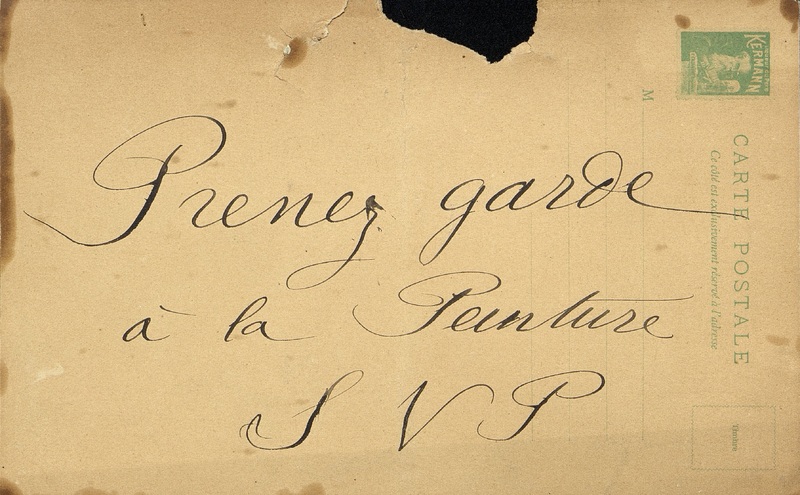 Prenez garde
à la Peinture
S V P
KERMANN
M
CARTE POSTALE
Ce côté est exclusivement réservé à l'adresse
Timbre